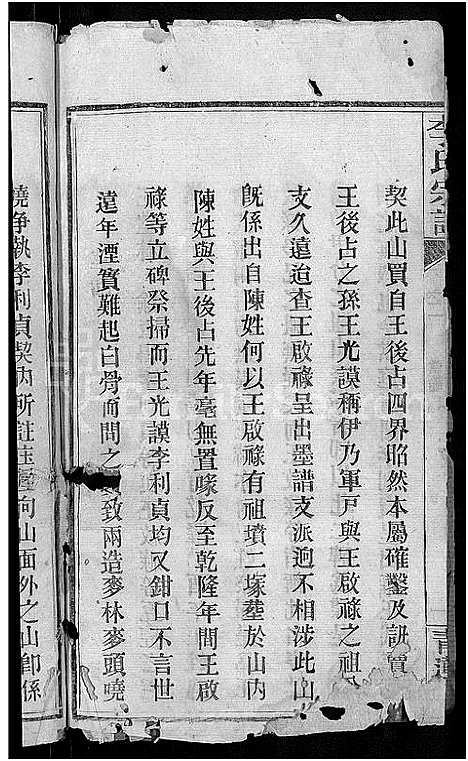 李氏宗譜
契此山買自王後占四界昭然本屬確鑿及訊買
王後占之孫王光謨稱伊乃軍戶與王啟祿之祖
支久遠迨查王啟祿呈出墨譜支派逈不相涉此山
既係出自陳姓何以王啟祿有祖墳二塚塟於山內
陳姓與王後占先年毫無置喙反至乾隆年間王啟
祿等立碑祭掃而王光謨李利貞均又鉗口不言世
遠年湮實難起白骨而問之致兩造麥林麥頭嘵
嘵爭執李利貞契內所註玉向山面外之山卽係